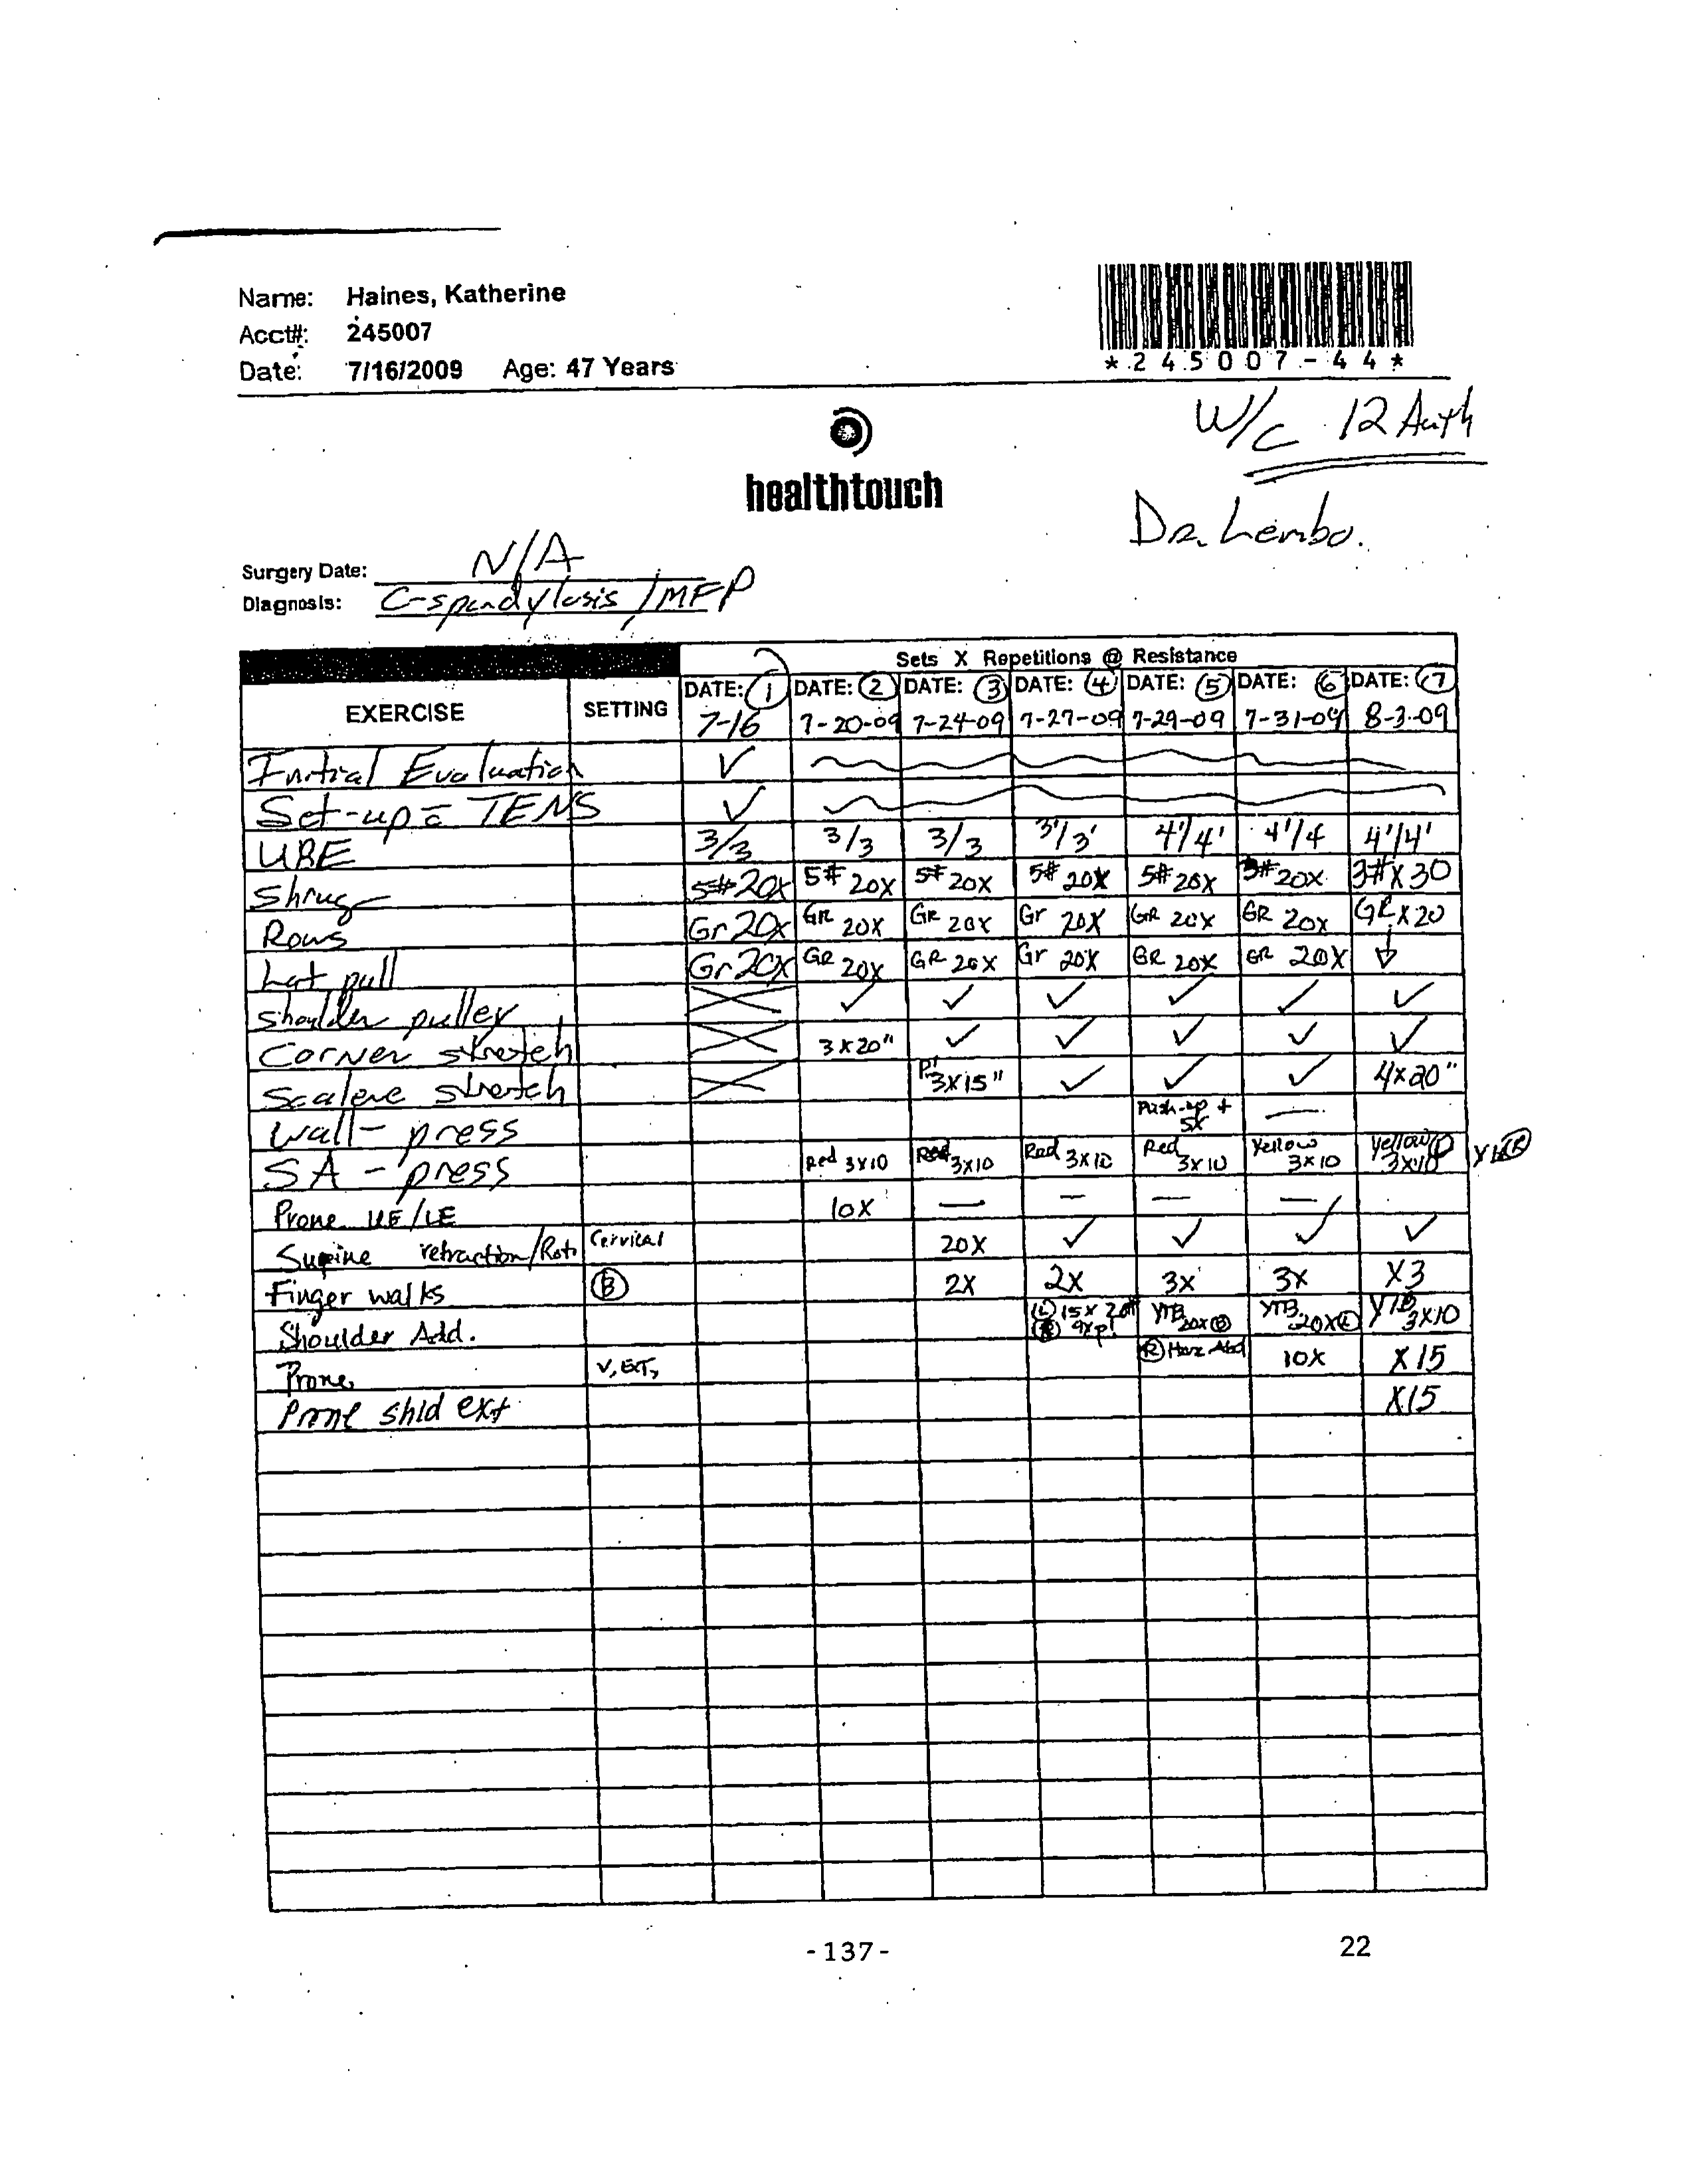 Name: Haines, Katherine
Acct#: 245007
Date: 7/16/2009 Age: 47 Years
*245007-44*
W/C 12 Auth
healthtouch
Dr. Lembo.
Surgery Date: N/A
Diagnosis: C-spondylosis / MFP
Sets X Repetitions @ Resistance
EXERCISE SETTING DATE: 1 7-16 DATE: 2 7-20-09 DATE: 3 7-24-09 DATE: 4 7-27-09 DATE: 5 7-29-09 DATE: 6 7-31-09 DATE: 7 8-3-09
Initial Evaluation ✓
Set-up TENS ✓
UBE 3/3 3/3 3/3 3'/3' 4'/4' 4'/4 4'/4'
Shrug 5# 20x 5# 20x 5# 20x 5# 20x 5# 20x 3# 20x 3# x 30
Rows Gr 20x GR 20x GR 20x Gr 20x GR 20x GR 20x GR x 20
Lat pull Gr 20x GR 20x GR 20x Gr 20x GR 20x GR 20x ↓
Shoulder pulley ✓ ✓ ✓ ✓ ✓ ✓
Corner stretch 3x20" ✓ ✓ ✓ ✓ ✓
Scalene stretch 3x15" ✓ ✓ ✓ 4x20"
Wall-press Push-up + 5x —
SA-press Red 3x10 Red 3x10 Red 3x10 Red 3x10 Yellow 3x10 Yellow 3x10
Prone UE/LE 10x — — — —
Supine retraction/Rot. Cervical 20x ✓ ✓ ✓ ✓
Finger walks B 2x 2x 3x 3x x3
Shoulder Add. L 15x R 9x YTB 20x YTB 20x YTB 3x10
Prone V, EXT, R Horz Abd 10x x15
Prone shld ext x15
-137- 22